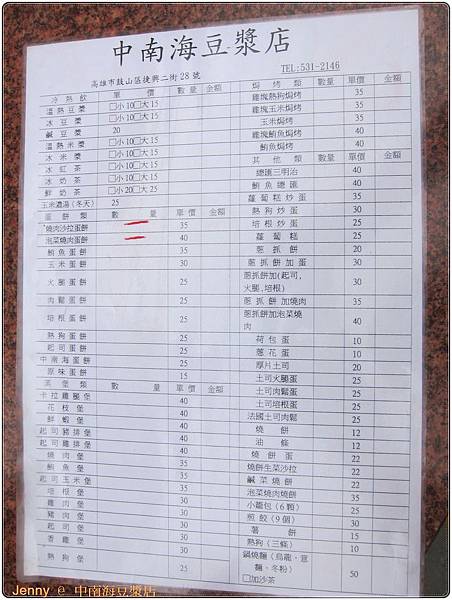 中南海豆漿店
TEL:531-2146
高雄市鼓山區捷興二街28號
冷熱飲 單價 數量 金額
溫熱豆漿 □小10□大15
冰豆漿 □小10□大15
鹹豆漿 20
溫熱米漿 □小10□大15
冰米漿 □小10□大15
冰紅茶 □小10□大15
冰奶茶 □小10□大15
鮮奶茶 □小20□大25
玉米濃湯(冬天) 25
蛋餅類 數量 單價 金額
燒肉沙拉蛋餅 35
泡菜燒肉蛋餅 40
鮪魚蛋餅 35
玉米蛋餅 30
火腿蛋餅 25
肉鬆蛋餅 25
培根蛋餅 25
熱狗蛋餅 25
起司蛋餅 25
中南海蛋餅 25
原味蛋餅 15
漢堡類 數量 單價 金額
卡拉雞腿堡 40
花枝堡 40
鮮蝦堡 40
起司豬排堡 40
起司雞排堡 40
燒肉堡 40
鮪魚堡 35
起司玉米堡 35
培根堡 30
雞肉堡 30
豬肉堡 30
起司堡 25
香雞堡 30
熱狗堡 25
焗烤類 數量 單價 金額
雞塊熱狗焗烤 35
雞塊玉米焗烤 35
玉米焗烤 35
雞塊鮪魚焗烤 40
鮪魚焗烤 40
其他類 數量 單價 金額
總匯三明治 40
鮪魚總匯 40
蘿蔔糕炒蛋 35
熱狗炒蛋 30
培根炒蛋 25
蘿蔔糕 25
蔥抓餅 20
蔥抓餅加蛋 30
蔥抓餅加(起司,火腿,培根) 30
蔥抓餅加燒肉 35
蔥抓餅加泡菜燒肉 40
荷包蛋 10
蔥花蛋 10
厚片土司 20
土司火腿蛋 25
土司肉鬆蛋 25
土司培根蛋 25
法國土司肉鬆 25
燒餅 12
油條 12
燒餅蛋 22
燒餅生菜沙拉 22
鹹菜燒餅 22
泡菜燒肉燒餅 35
小籠包(6顆) 25
煎餃(9個) 30
薯餅 10
熱狗(三條) 10
鍋燒麵(烏龍、意麵、冬粉) 50
□加沙茶
Jenny @ 中南海豆漿店